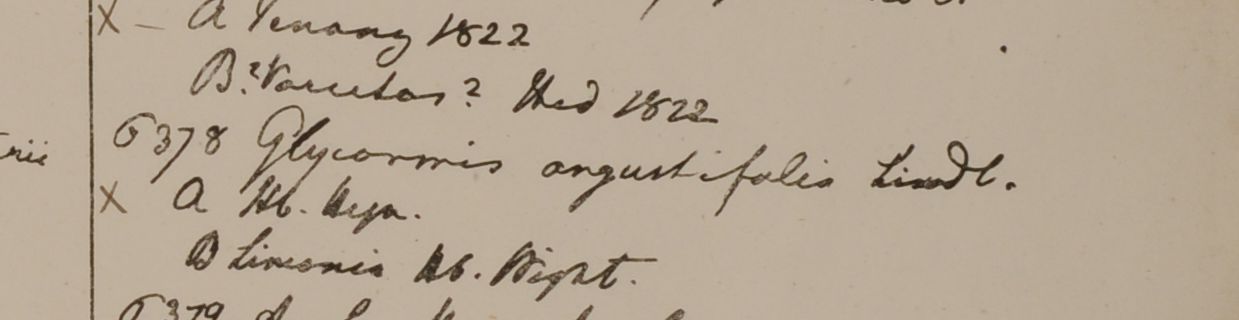 X – A Penang 1822
B? Varietas? Hed 1822
6378 Glycosmis angustifolia Lindl.
X A Hb. Heyn.
B Limonia Hb. Wight.
6379